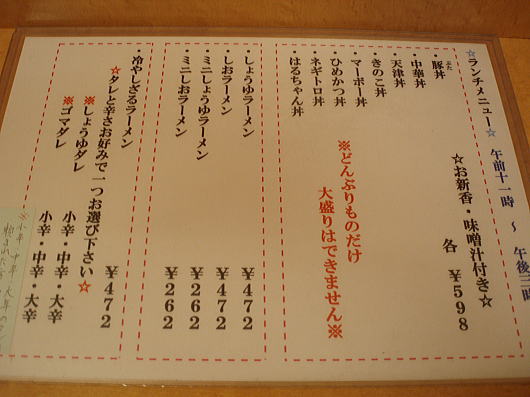 ☆ランチメニュー☆ 午前十一時 ～ 午後三時
☆お新香・味噌汁付き☆
各 ¥598
・豚丼
ぶた
・中華丼
・天津丼
・きのこ丼
・マーボー丼
・ひめかつ丼
・ネギトロ丼
はるちゃん丼
※どんぶりものだけ
大盛りはできません※
・しょうゆラーメン ¥472
ミニしょうゆラーメン ¥262
・しおラーメン ¥472
ミニしおラーメン ¥262
・冷やしざるラーメン ¥472
☆タレと辛さお好みで一つお選び下さい☆
※しょうゆダレ 小辛・中辛・大辛
※ゴマダレ 小辛・中辛・大辛
※小辛・中辛・大辛の